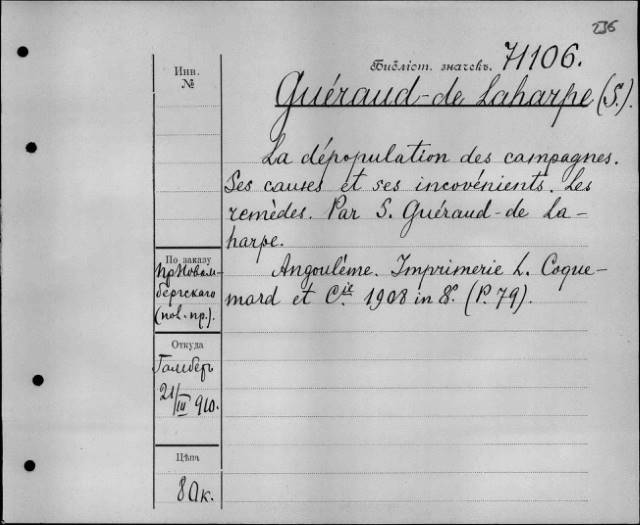 236
Инв.
№
Библіот. значекъ. 71106.
Guéraud-de Laharpe (S.).
La dépopulation des campagnes.
Ses causes et ses incovénients. Les
remèdes. Par S. Guéraud-de La-
harpe.
Angoulême. Imprimerie L. Coque-
mard et Cie 1908 in 8°. (P. 79).
По заказу
пр. Новом-
бергскаго
(пов. пр.).
Откуда
Гамберъ
21/III 910.
Цѣна
80к.